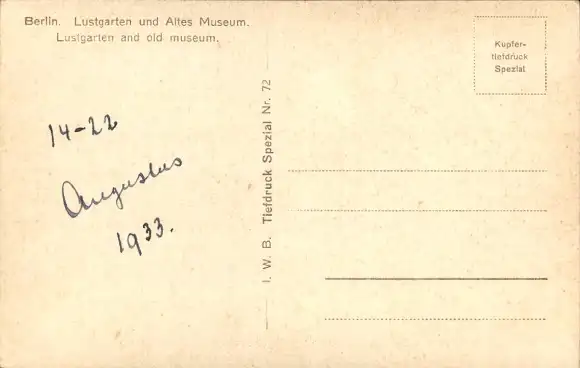 Berlin. Lustgarten und Altes Museum.
Lustgarten and old museum.
14-22
Augustus
1933.
I. W. B. Tiefdruck Spezial Nr. 72
Kupfer-
tiefdruck
Spezial